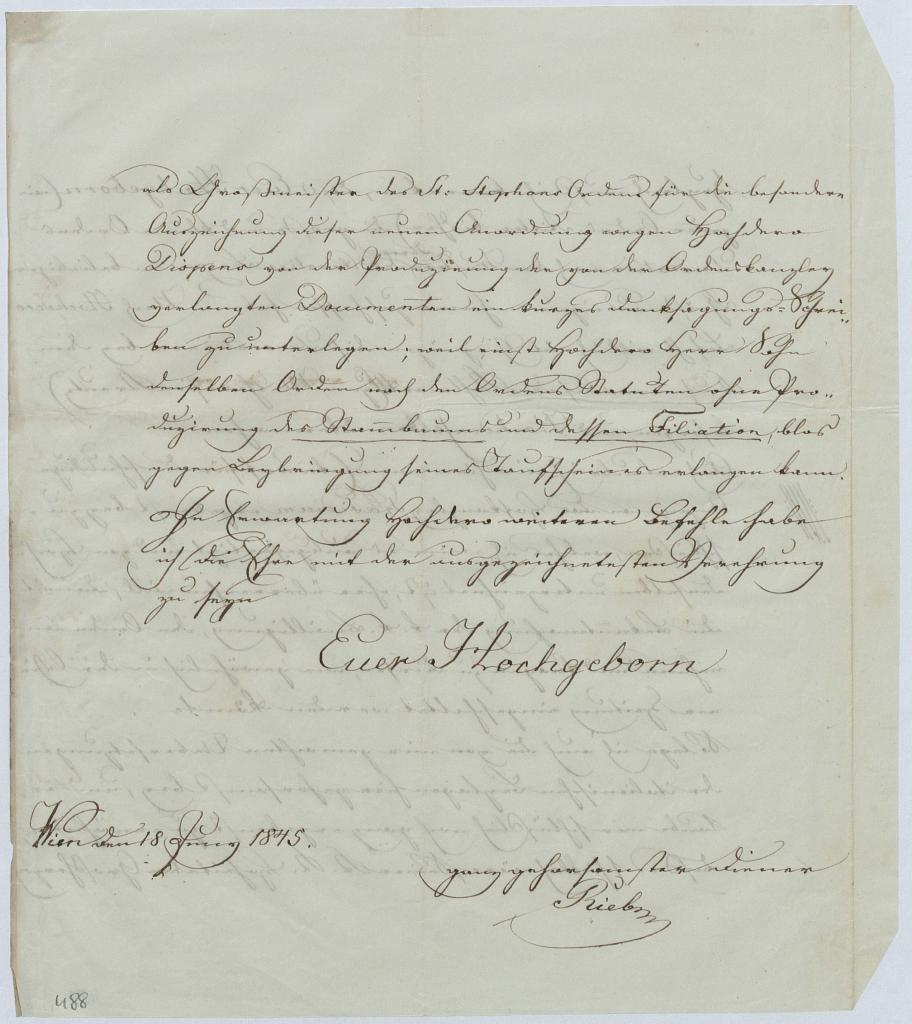 als Großmeister des St: Stephans Ordens für die besondere
Auszeichnung dieser neuen Anordnung wegen Hochdero
Dispens von der Produzirung der von der Ordenskanzley
verlangten Documenten ein kurzes Danksagungs=Schrei„
ben zu unterlegen, weil einst Hochdero Herr Sohn
denselben Orden nach den Ordens Statuten ohne Pro„
duzirung des Stammbaums und dessen Filiation, blos
gegen Beybringung seines Taufscheines erlangen kann.
In Erwartung Hochdero weiteren Befehle habe
ich die Ehre mit der ausgezeichnetesten Verehrung
zu seyn
Euer Hochgeborn
Wien den 18 Juny 1845.
ganz gehorsamster Diener
488